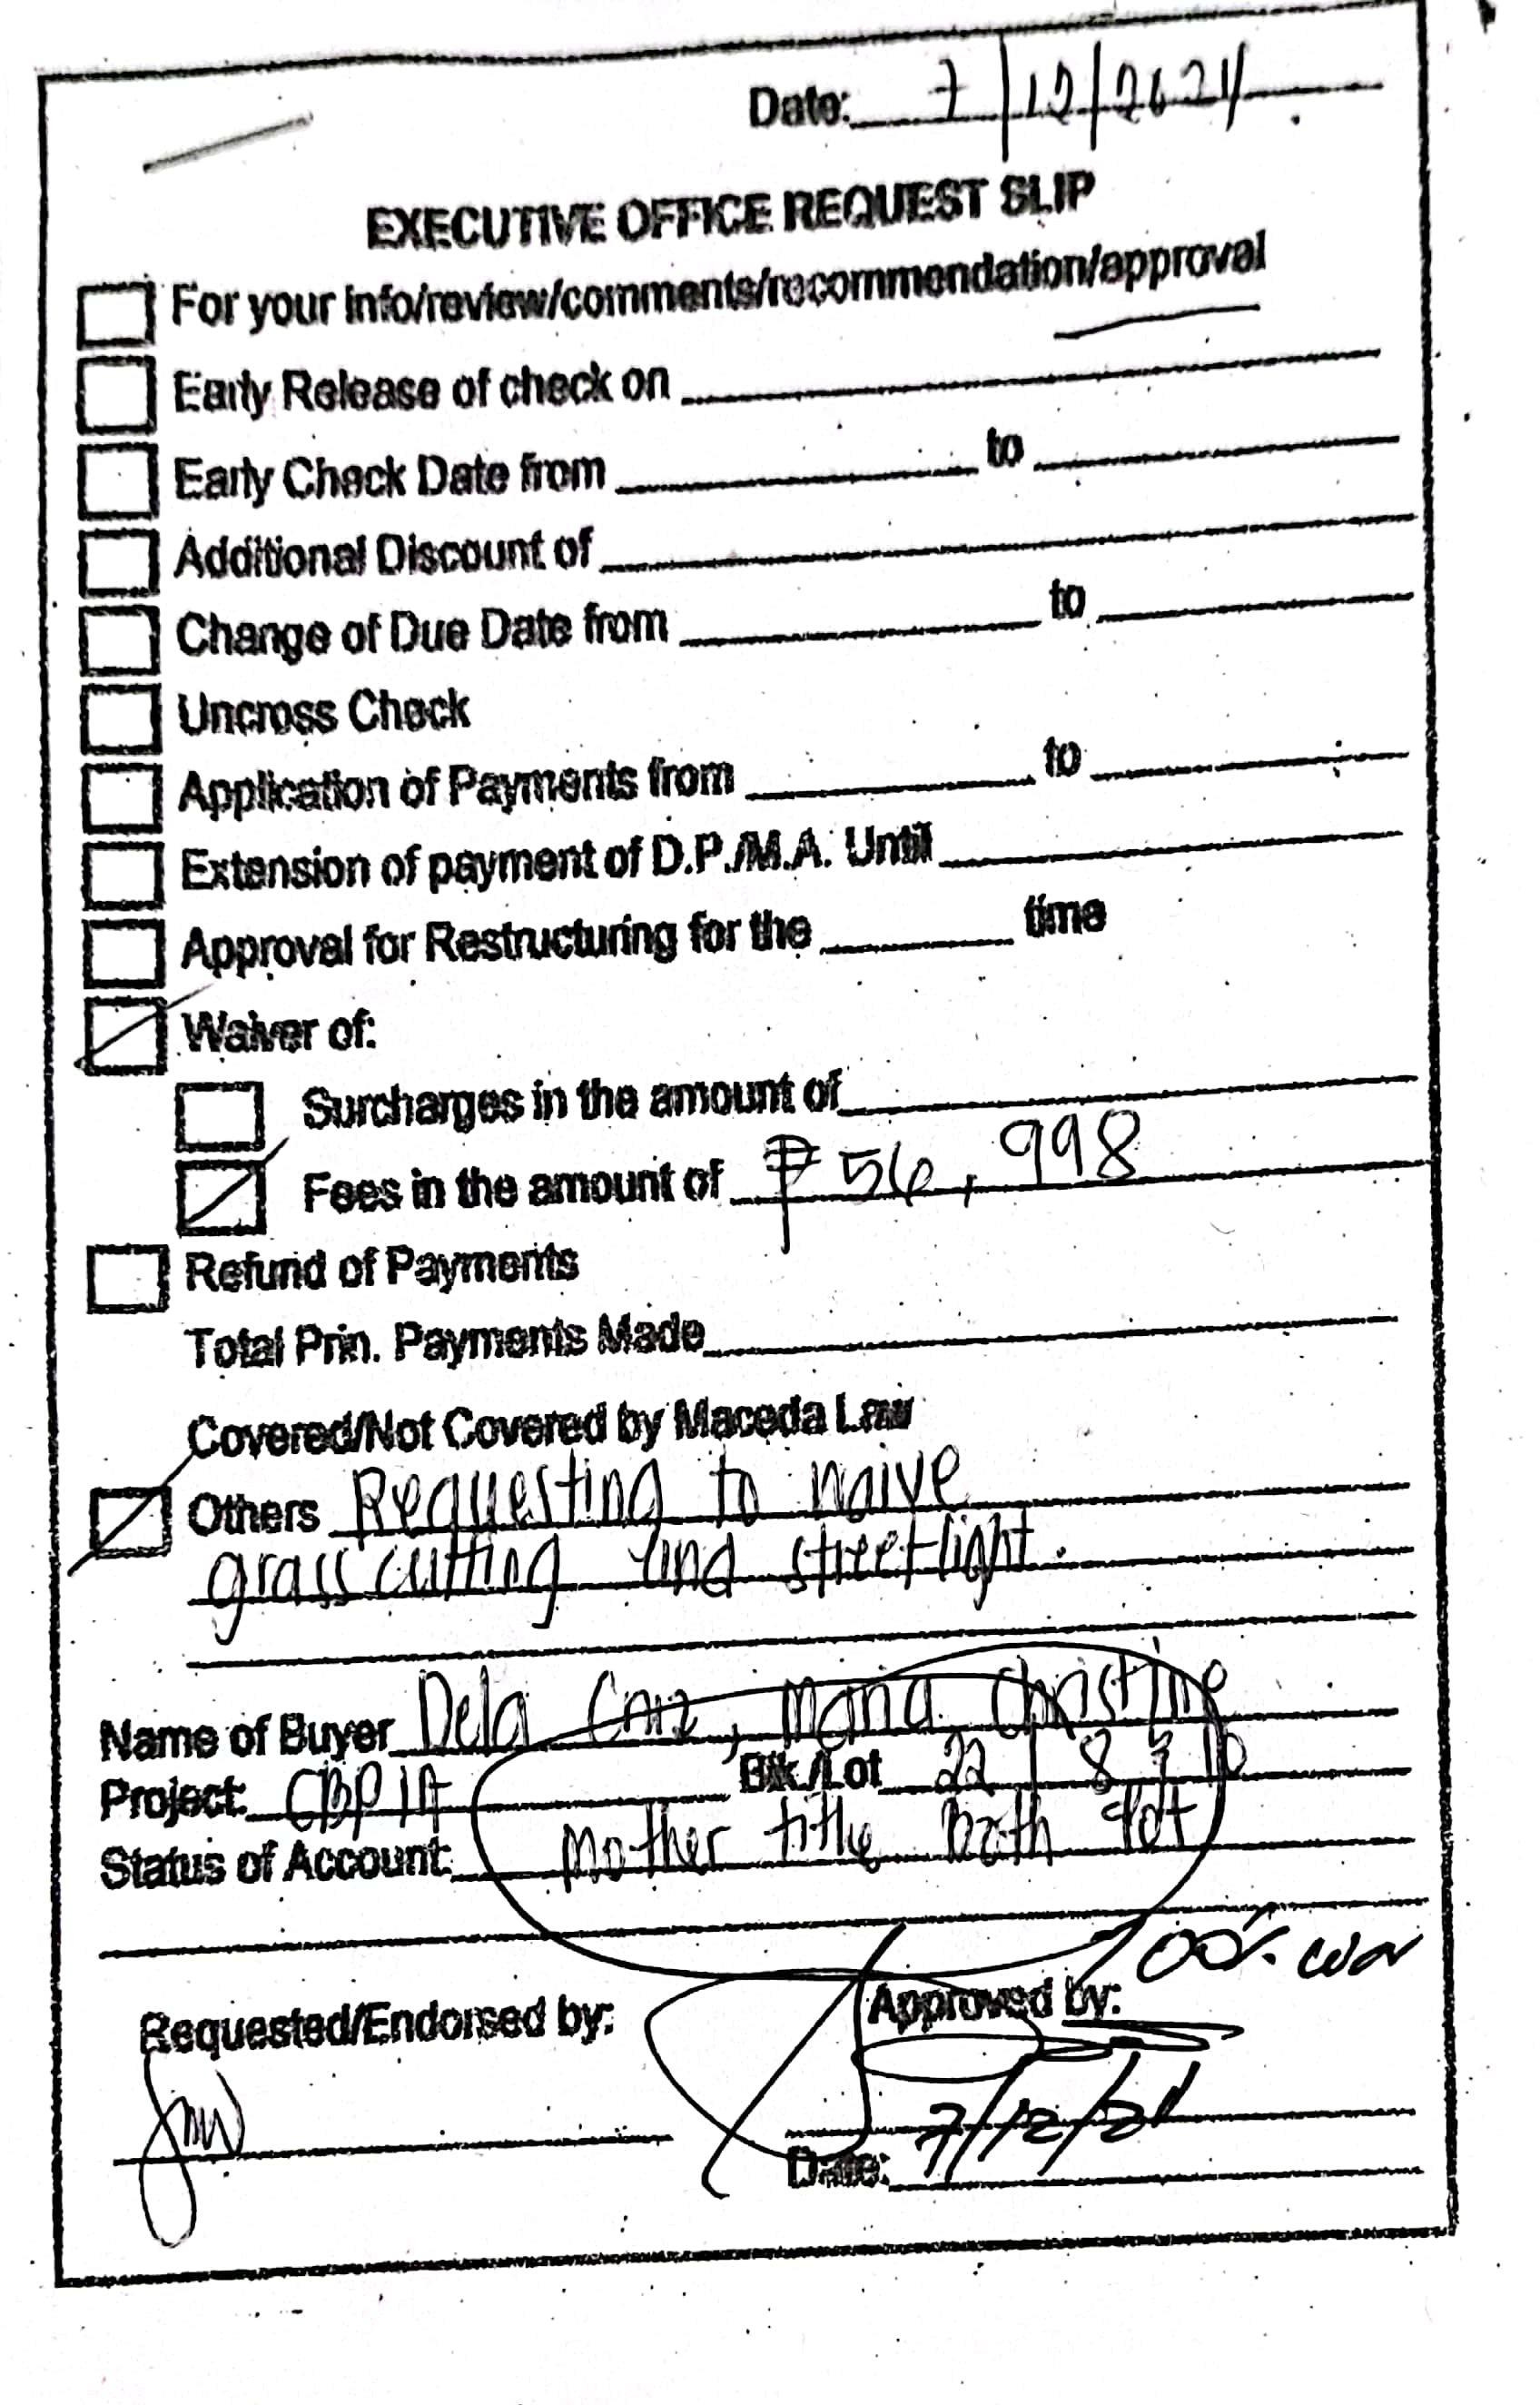 Date: 7/12/2024
EXECUTIVE OFFICE REQUEST SLIP
For your info/review/comments/recommendation/approval
Early Release of check on
Early Check Date from to
Additional Discount of
Change of Due Date from to
Uncross Check
Application of Payments from to
Extension of payment of D.P./M.A. Until
Approval for Restructuring for the time
Waiver of:
Surcharges in the amount of
Fees in the amount of ₱56,998
Refund of Payments
Total Prin. Payments Made
Covered/Not Covered by Maceda Law
Others Requesting to waive
grass cutting and streetlight.
Name of Buyer Dela Cruz, Maria Christine
Project: Blk./Lot 22 / 8 10
Status of Account: Mother title both
100%
Requested/Endorsed by: Approved by:
Date: 7/12/24